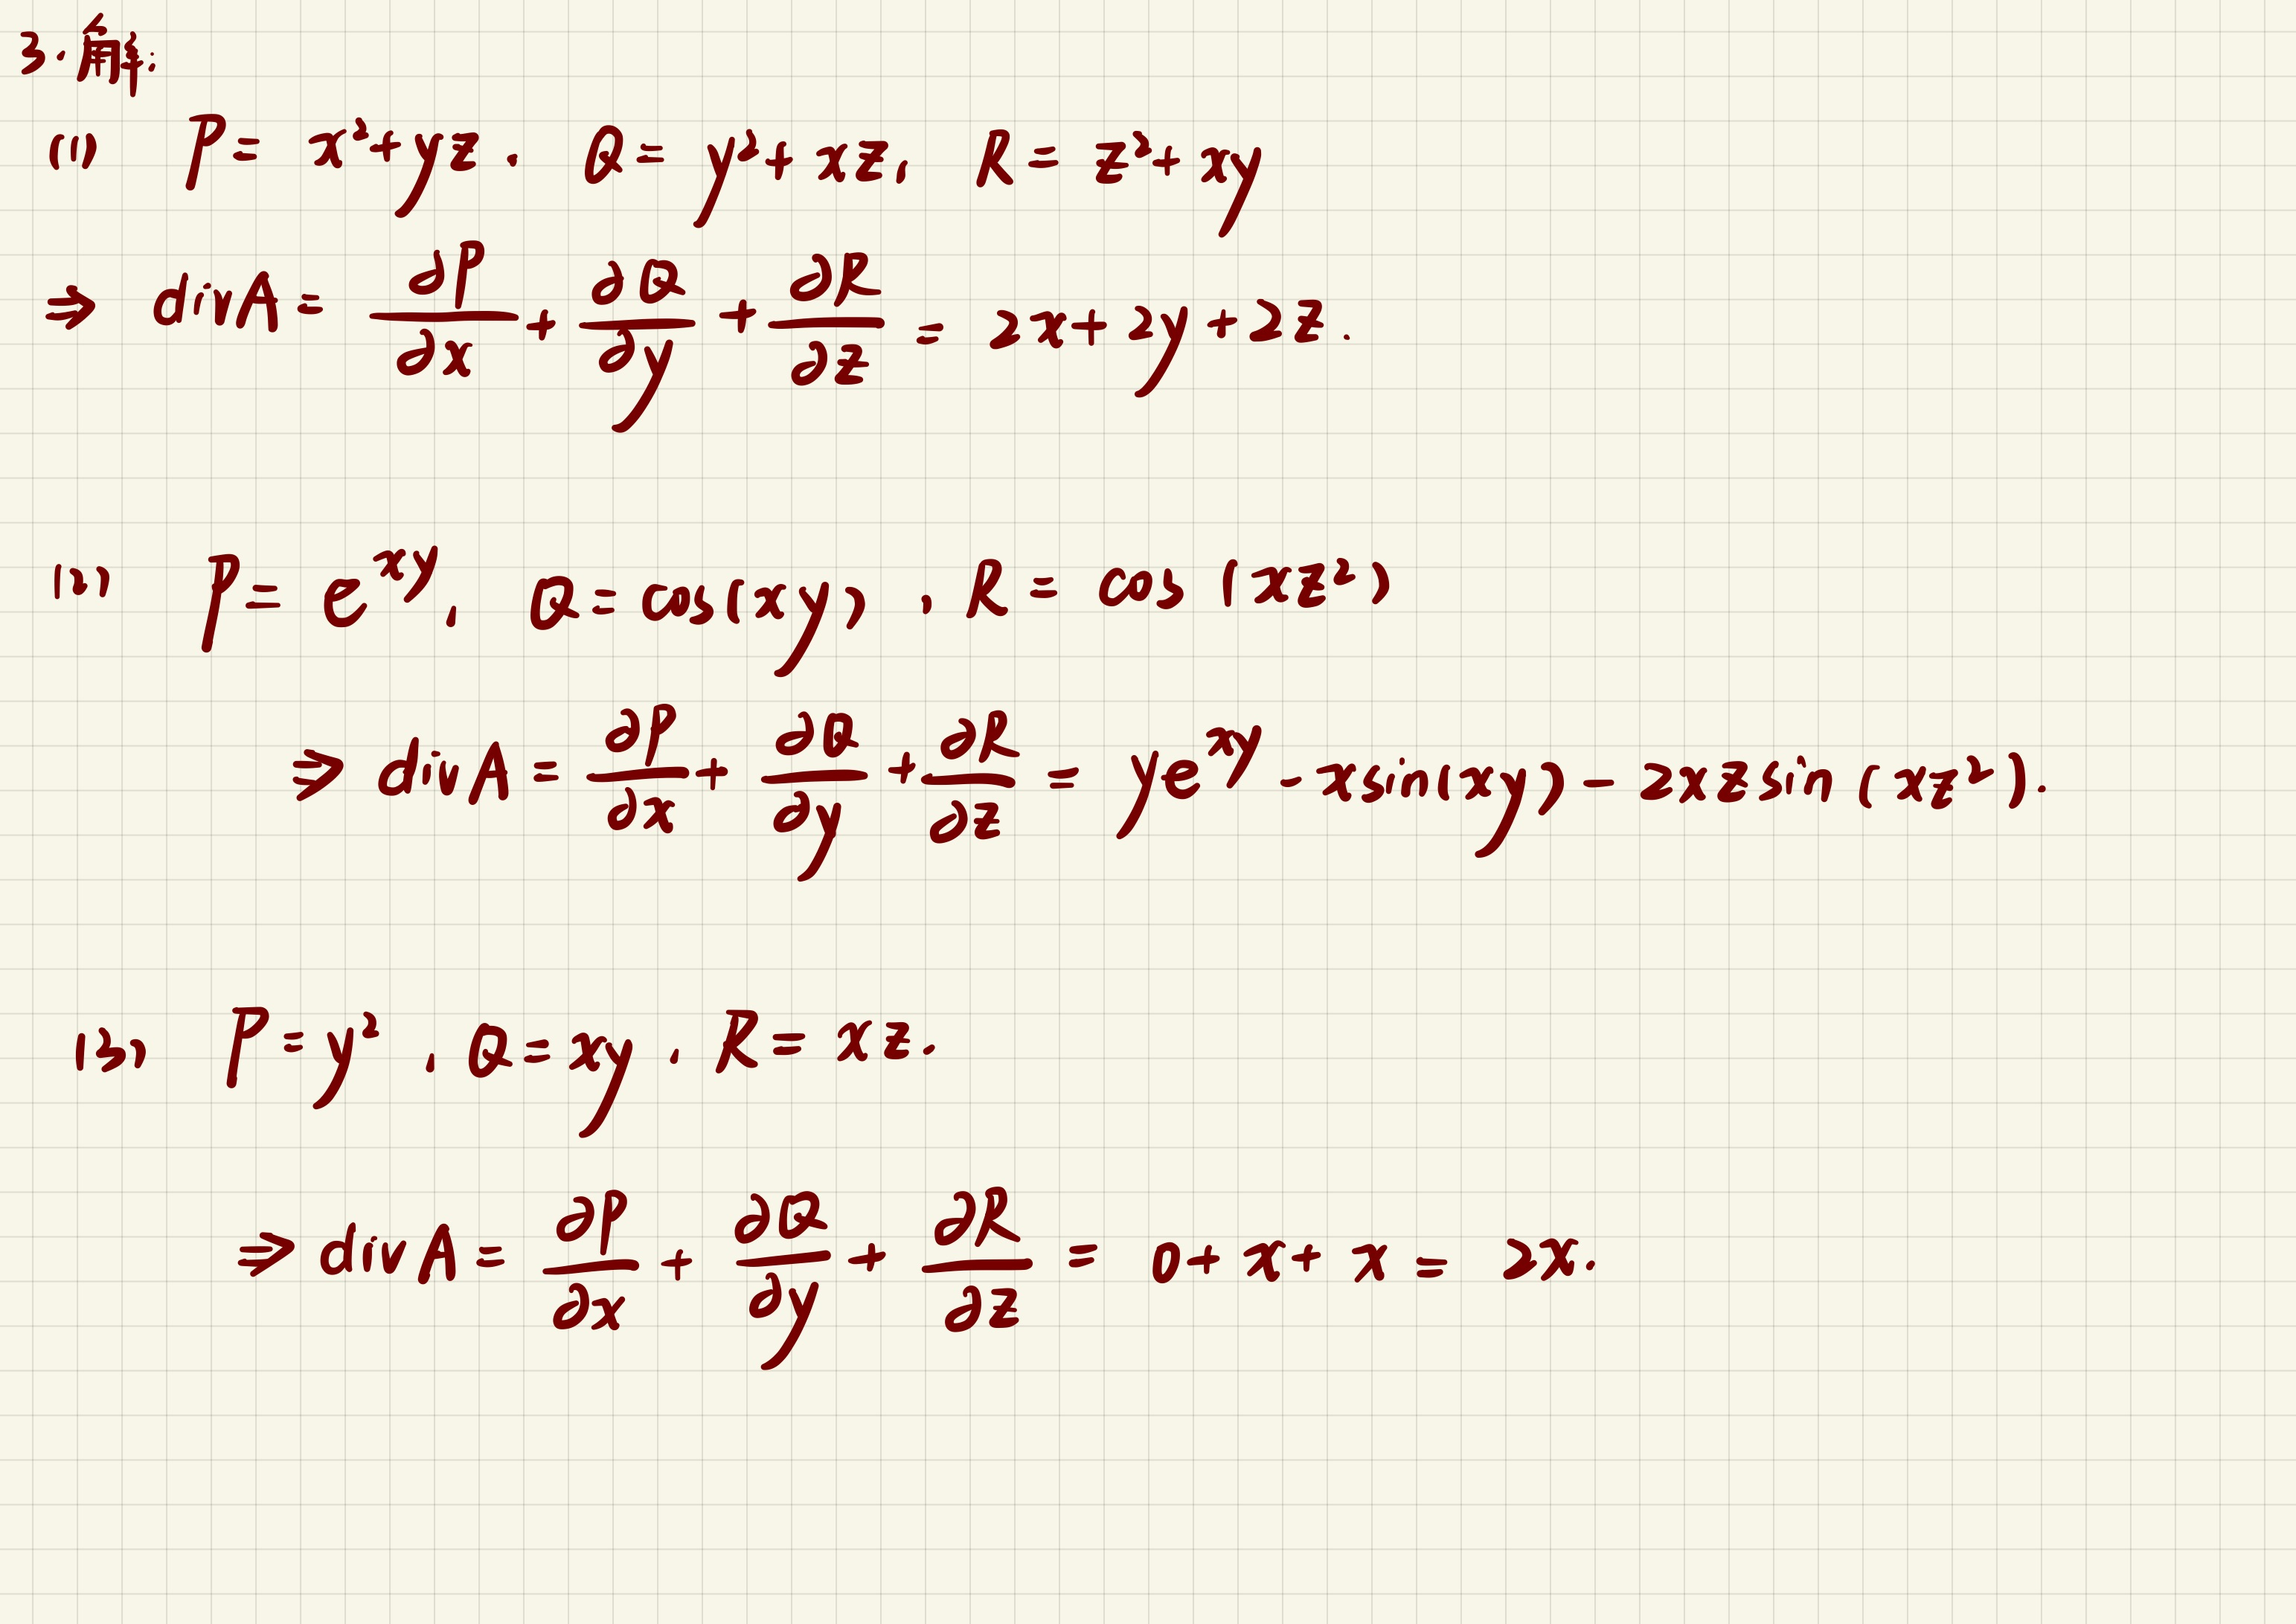 3. 解:
(1) P = x²+yz, Q = y²+xz, R = z²+xy
⇒ divA = ∂P/∂x + ∂Q/∂y + ∂R/∂z = 2x+2y+2z.
(2) P = e^{xy}, Q = cos(xy), R = cos(xz²)
⇒ divA = ∂P/∂x + ∂Q/∂y + ∂R/∂z = ye^{xy} - xsin(xy) - 2xzsin(xz²).
(3) P = y², Q = xy, R = xz.
⇒ divA = ∂P/∂x + ∂Q/∂y + ∂R/∂z = 0+x+x = 2x.